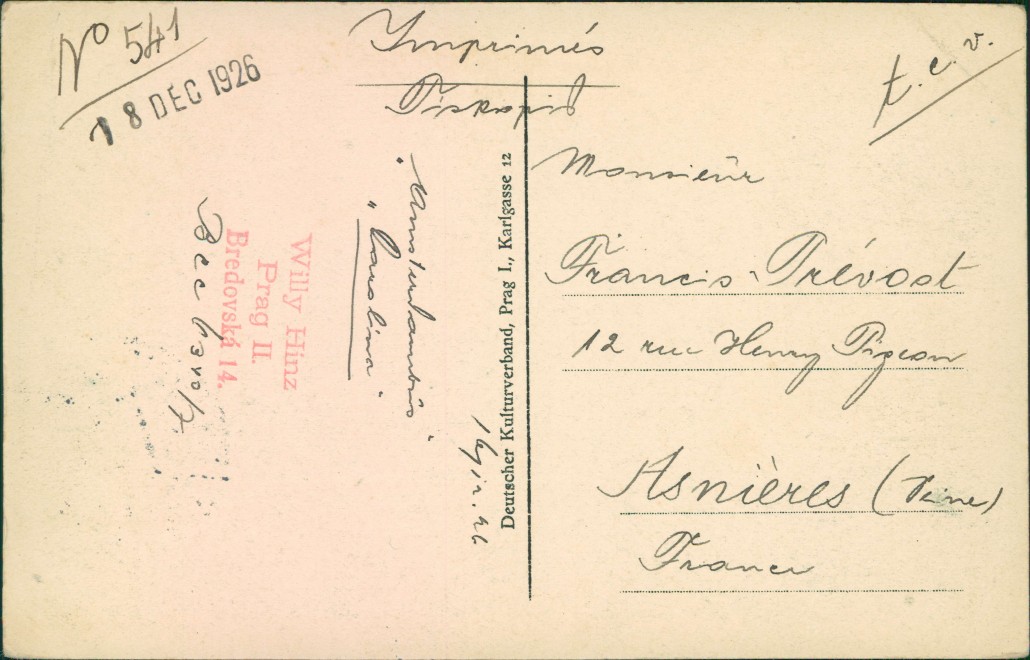 No 541
18 DEC 1926
Imprimés
Tiskopis
t. c. v.
"
"Carolina"
Willy Hinz
Prag II.
Bredovská 14.
Deutscher Kulturverband, Prag I., Karlgasse 12
Monsieur
Francis Prévost
12 rue Henry Pigeon
Asnières (Seine)
France